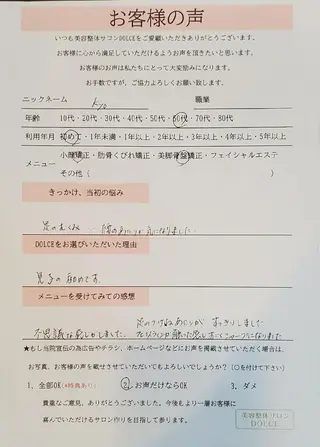 お客様の声
いつも美容整体サロンDOLCEをご愛顧いただきありがとうございます。
お客様に心から満足していただけるようお声を頂きたいと思います。
お客様のお声は私たちにとって大変励みになります。
お手数ですが、ご協力よろしくお願い致します。
ニックネーム 職業
年齢 10代・20代・30代・40代・50代・60代・70代・80代
利用年月 初めて・1年未満・1年以上・2年以上・3年以上・4年以上・5年以上
メニュー 小顔矯正・肋骨くびれ矯正・美脚骨盤矯正・フェイシャルエステ
その他（ ）
きっかけ、当初の悩み
足のむくみ 腰のあたりが気になりました
DOLCEをお選びいただいた理由
息子の勧めです。
メニューを受けてみての感想
足のつけねあたりが すっきりしました
不思議な感じがしました。
★もし当院宣伝の為広告やチラシ、ホームページなどにお声を掲載させていただく場合は、
お写真、お客様の声を載せさせていただいてもよろしいでしょうか？（○を付けて下さい）
1. 全部OK（★特典あり） 2. お声だけならOK 3. ダメ
貴重なご意見、ありがとうございました。今後もより一層お客様に
喜んでいただけるサロン作りを目指して参ります。
美容整体サロン
DOLCE